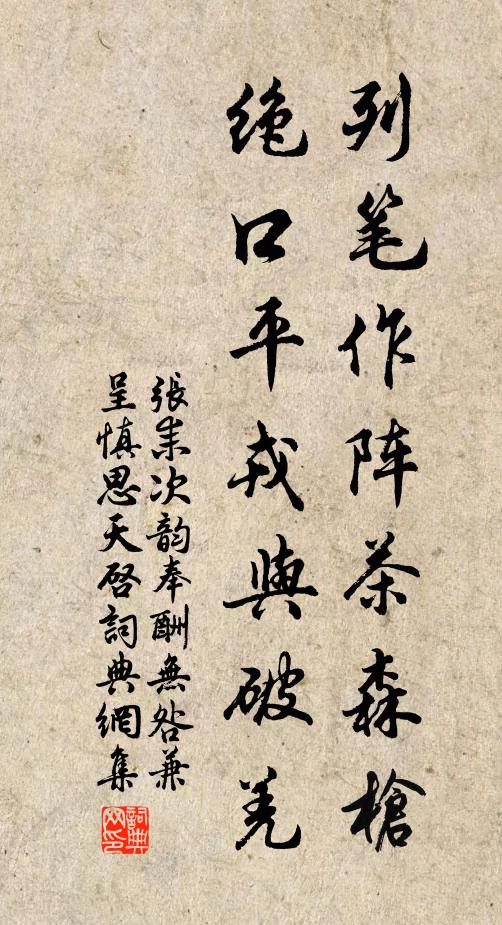 列笔作阵茶森槍
绝口平戎與破羌
張耒次韵奉酬無咎兼
呈慎思天啓詞典網集
詞典网印